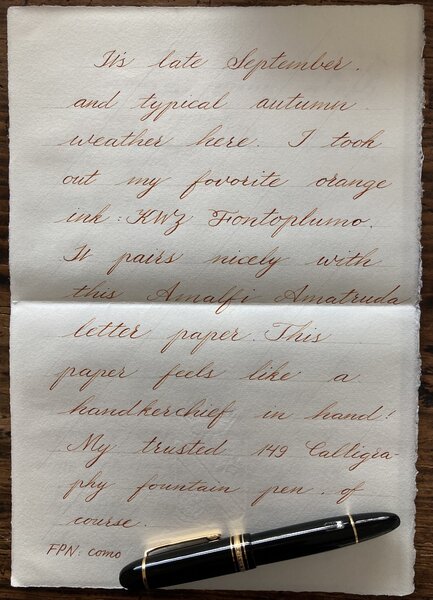 It's late September.
and typical autumn
weather here. I took
out my favorite orange
ink: KWZ Fontoplumo.
It pairs nicely with
this Amalfi Amatruda
letter paper. This
paper feels like a
handkerchief in hand!
My trusted 149 Calligra-
phy fountain pen. of
course.
FPN: como